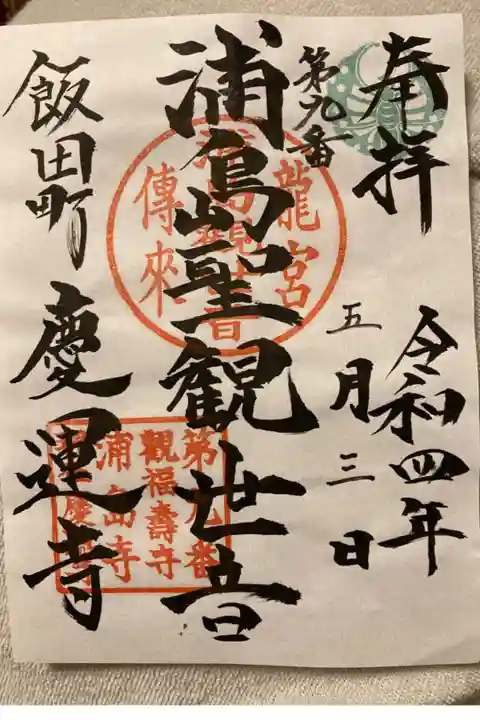 奉拝
令和四年
五月三日
第九番
浦島聖観世音
龍宮
浦島観世音
傳来
飯田町 慶運寺
第九番
観福壽寺
浦島寺